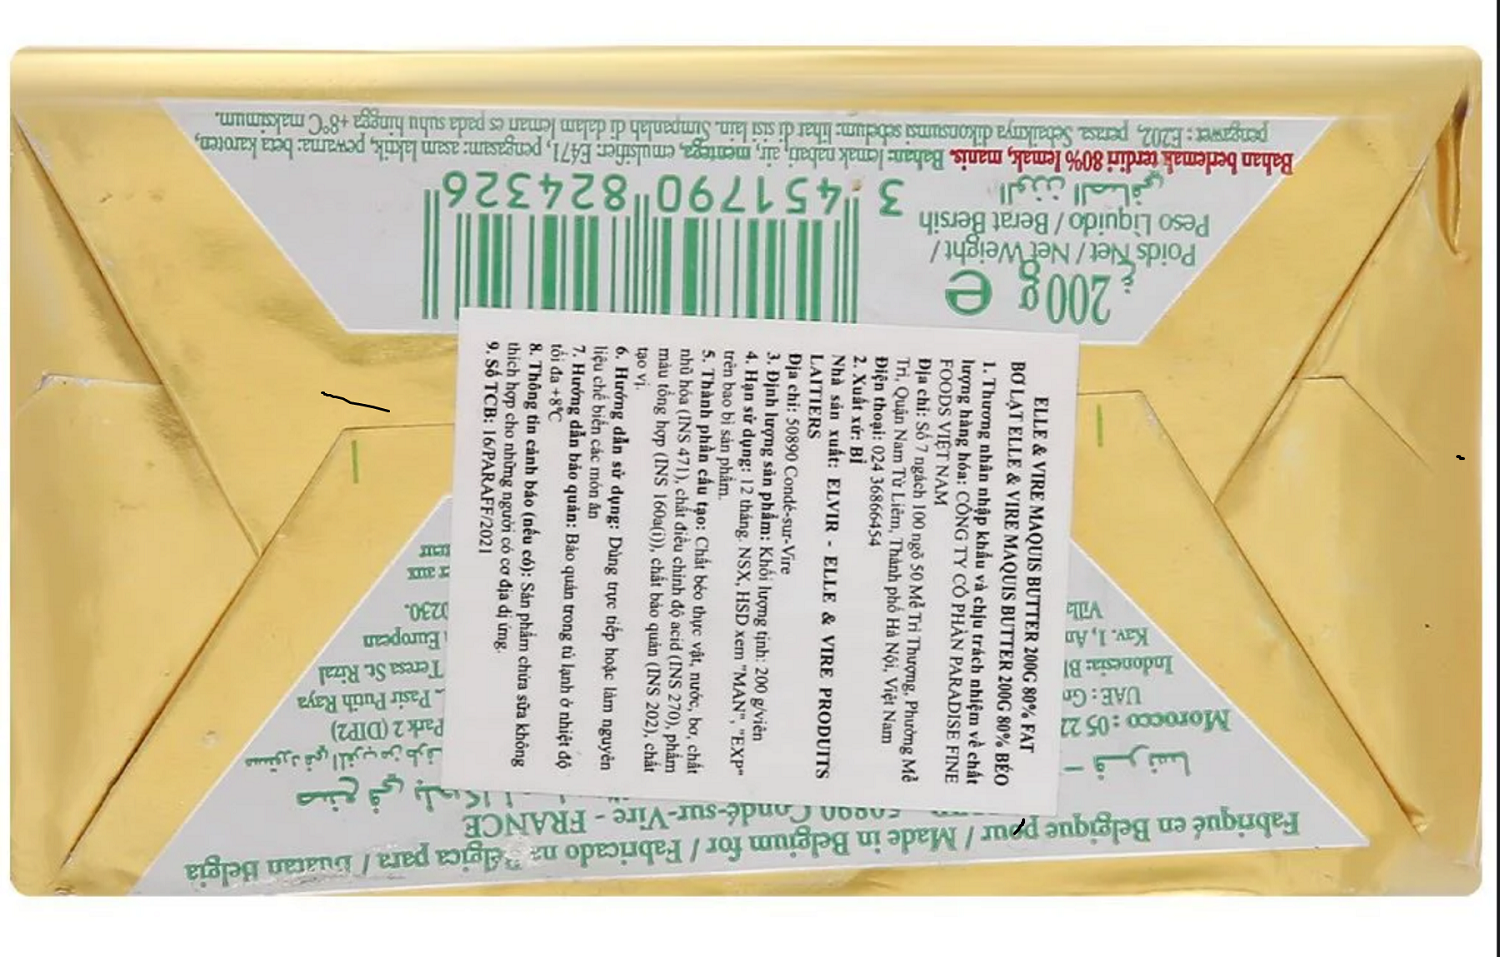 ELLE & VIRE MAQUIS BUTTER 200G 80% FAT
BƠ LẠT ELLE & VIRE MAQUIS BUTTER 200G 80% BÉO
1. Thương nhân nhập khẩu và chịu trách nhiệm về chất
lượng hàng hóa: CÔNG TY CỔ PHẦN PARADISE FINE
FOODS VIỆT NAM
Địa chỉ: Số 7 ngách 100 ngõ 50 Mễ Trì Thượng, Phường Mễ
Trì, Quận Nam Từ Liêm, Thành phố Hà Nội, Việt Nam
Điện thoại: 024 36866454
2. Xuất xứ: BỈ
Nhà sản xuất: ELVIR - ELLE & VIRE PRODUITS
LAITIERS
Địa chỉ: 50890 Condé-sur-Vire
3. Định lượng sản phẩm: Khối lượng tịnh: 200 g/viên
4. Hạn sử dụng: 12 tháng. NSX, HSD xem "MAN", "EXP"
trên bao bì sản phẩm.
5. Thành phần cấu tạo: Chất béo thực vật, nước, bơ, chất
nhũ hóa (INS 471), chất điều chỉnh độ acid (INS 270), phẩm
màu tổng hợp (INS 160a(i)), chất bảo quản (INS 202), chất
tạo vị.
6. Hướng dẫn sử dụng: Dùng trực tiếp hoặc làm nguyên
liệu chế biến các món ăn
7. Hướng dẫn bảo quản: Bảo quản trong tủ lạnh ở nhiệt độ
tối đa +8°C
8. Thông tin cảnh báo (nếu có): Sản phẩm chứa sữa không
thích hợp cho những người có cơ địa dị ứng.
9. Số TCB: 16/PARAFF/2021
Fabriqué en Belgique pour / Made in Belgium for / Fabricado na Bélgica para / Buatan Belgia
50890 Condé-sur-Vire - FRANCE
صنع في
Morocco : 05 22 Park 2 (DIP2)
UAE : Pasir Putih Raya
Indonesia: Teresa St. Rizal
Kav. 1, European
Villa 0230.
200 g e
Poids Net / Net Weight /
Peso Líquido / Berat Bersih
الوزن الصافي
3 451790 824326
Bahan berlemak terdiri 80% lemak, manis. Bahan: lemak nabati, air, mentega, emulsifier: E471, pengasam: asam laktik, pewarna: beta karoten,
pengawet : E202, perasa. Sebaiknya dikonsumsi sebelum: lihat di sisi lain. Simpanlah di dalam lemari es pada suhu hingga +8°C maksimum.